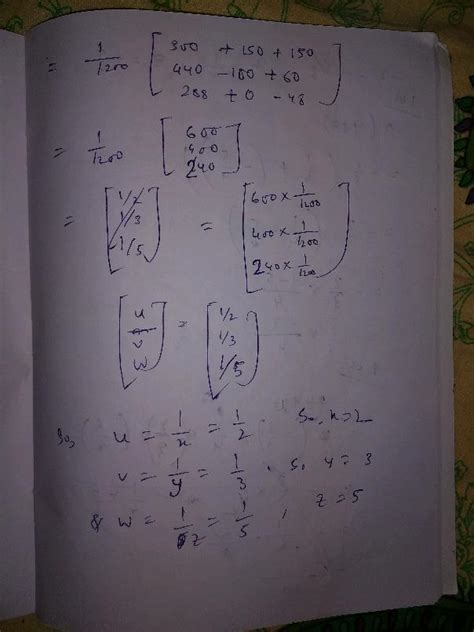 = 1/1200 [ 300 + 150 + 150
440 - 100 + 60
288 + 0 - 48 ]
= 1/1200 [ 600
400
240 ]
= [ 1/2
1/3
1/5 ] = [ 600 × 1/1200
400 × 1/1200
240 × 1/1200 ]
[ u
v
w ] = [ 1/2
1/3
1/5 ]
So, u = 1/x = 1/2 So, x = 2
v = 1/y = 1/3 . So y = 3
& w = 1/z = 1/5 , z = 5